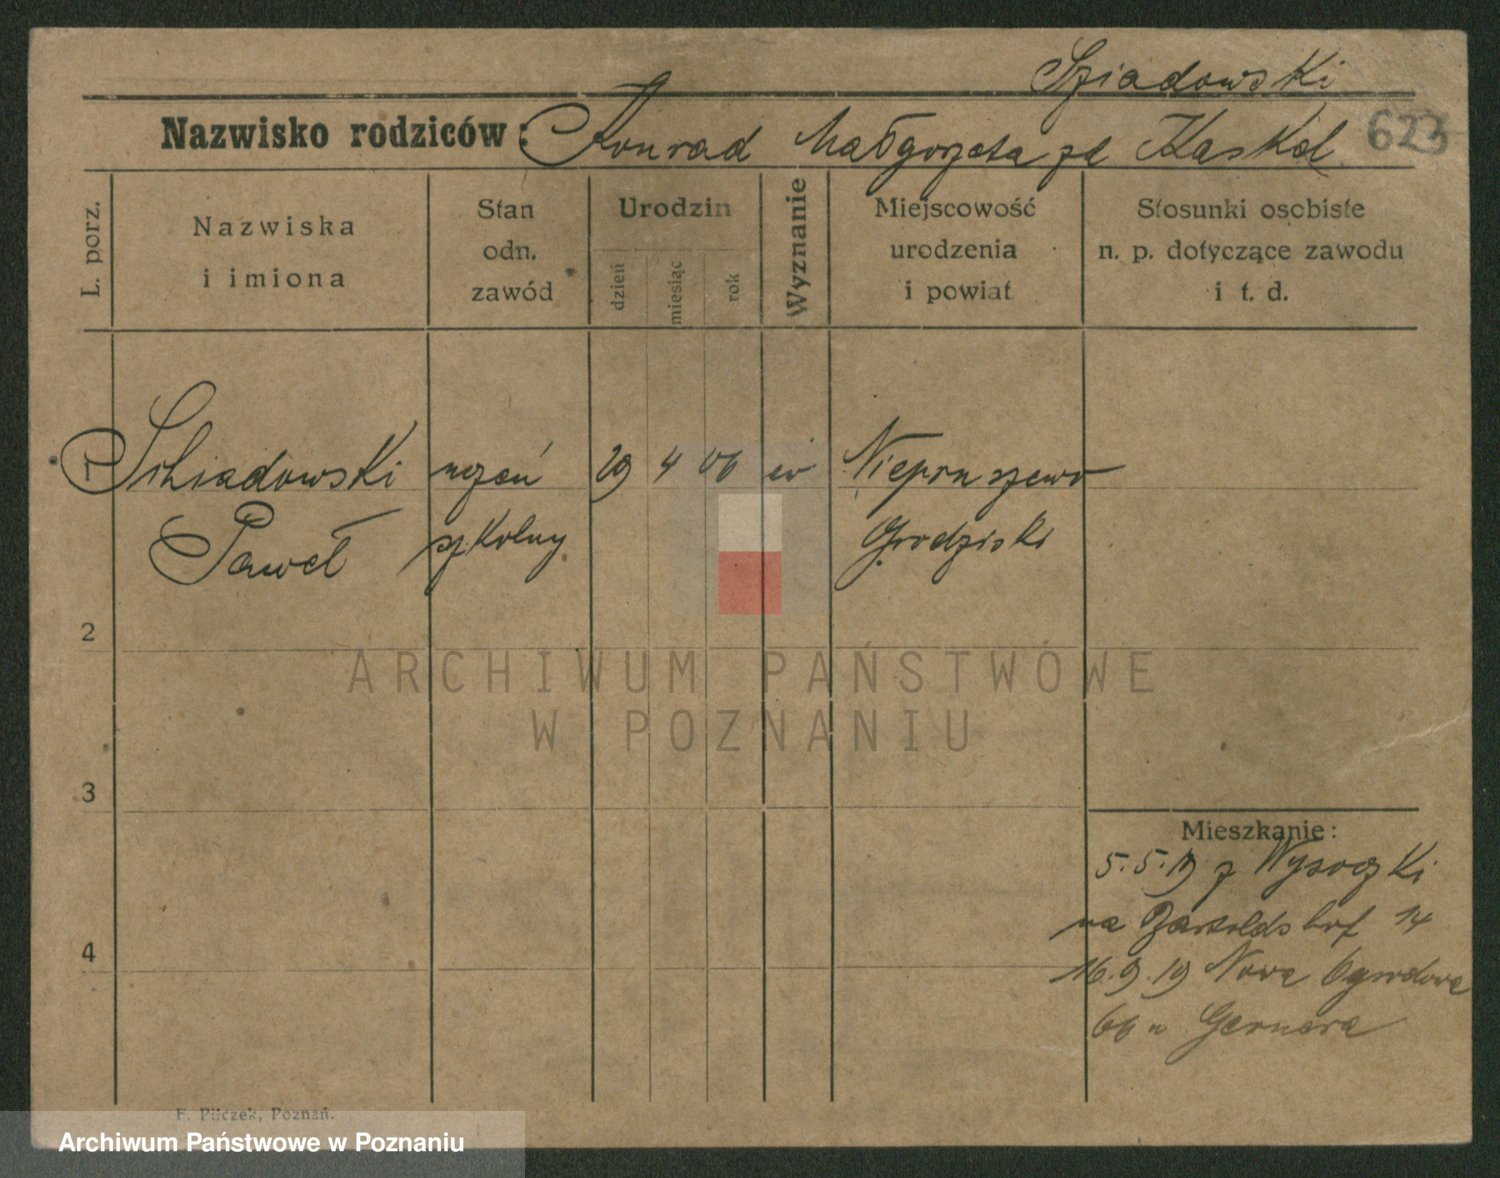 Sziadowski
Nazwisko rodziców: Konrad Małgorzata zd Kaskel 623
L. porz.
Nazwiska
i imiona
Stan
odn.
zawód
Urodzin
dzień
miesiąc
rok
Wyznanie
Miejscowość
urodzenia
i powiat
Stosunki osobiste
n. p. dotyczące zawodu
i t. d.
1 Schiadowski uczeń 29 4 06 ew Niepruszewo
Paweł szkolny Grodziski
2
3
4
Mieszkanie:
5.5.19 z Wysoczki
na 14
16.9.19 Nowa Ogrodowa
66 u Gernera
F. Pilczek, Poznań.
ARCHIWUM PAŃSTWOWE
W POZNANIU
Archiwum Państwowe w Poznaniu